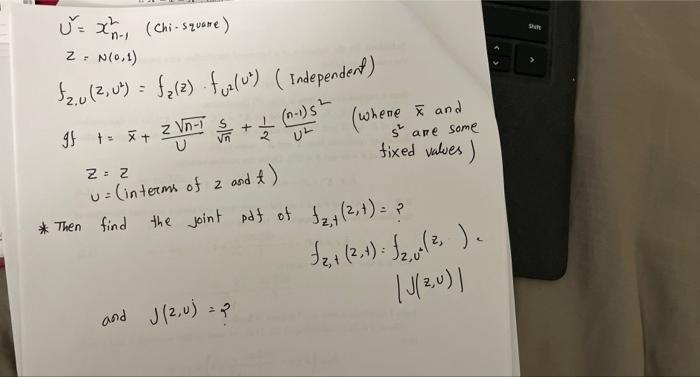 U² = x²ₙ₋₁ (chi-square)
Z = N(0,1)
f_{z,u}(z,u²) = f_z(z) · f_{u²}(u²) (Independent)
gf t = x̄ + z√n-1/U s/√n + 1/2 (n-1)s²/U² (where x̄ and
s² are some
fixed values)
z = z
u = (interms of z and t)
* Then find the joint pdf of f_{z,t}(z,t) = ?
f_{z,t}(z,t) = f_{z,u²}(z, ) ·
|J(z,u)|
and J(z,u) = ?
Shift